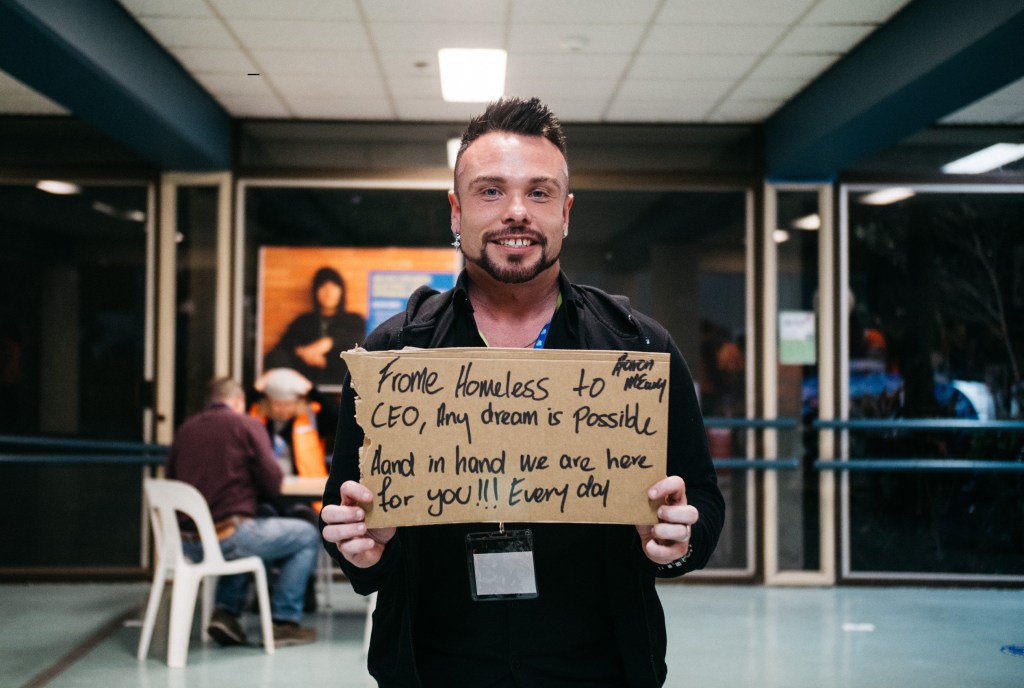 Frome Homeless to
CEO, Any dream is Possible
Hand in hand we are here
for you!!! Every day